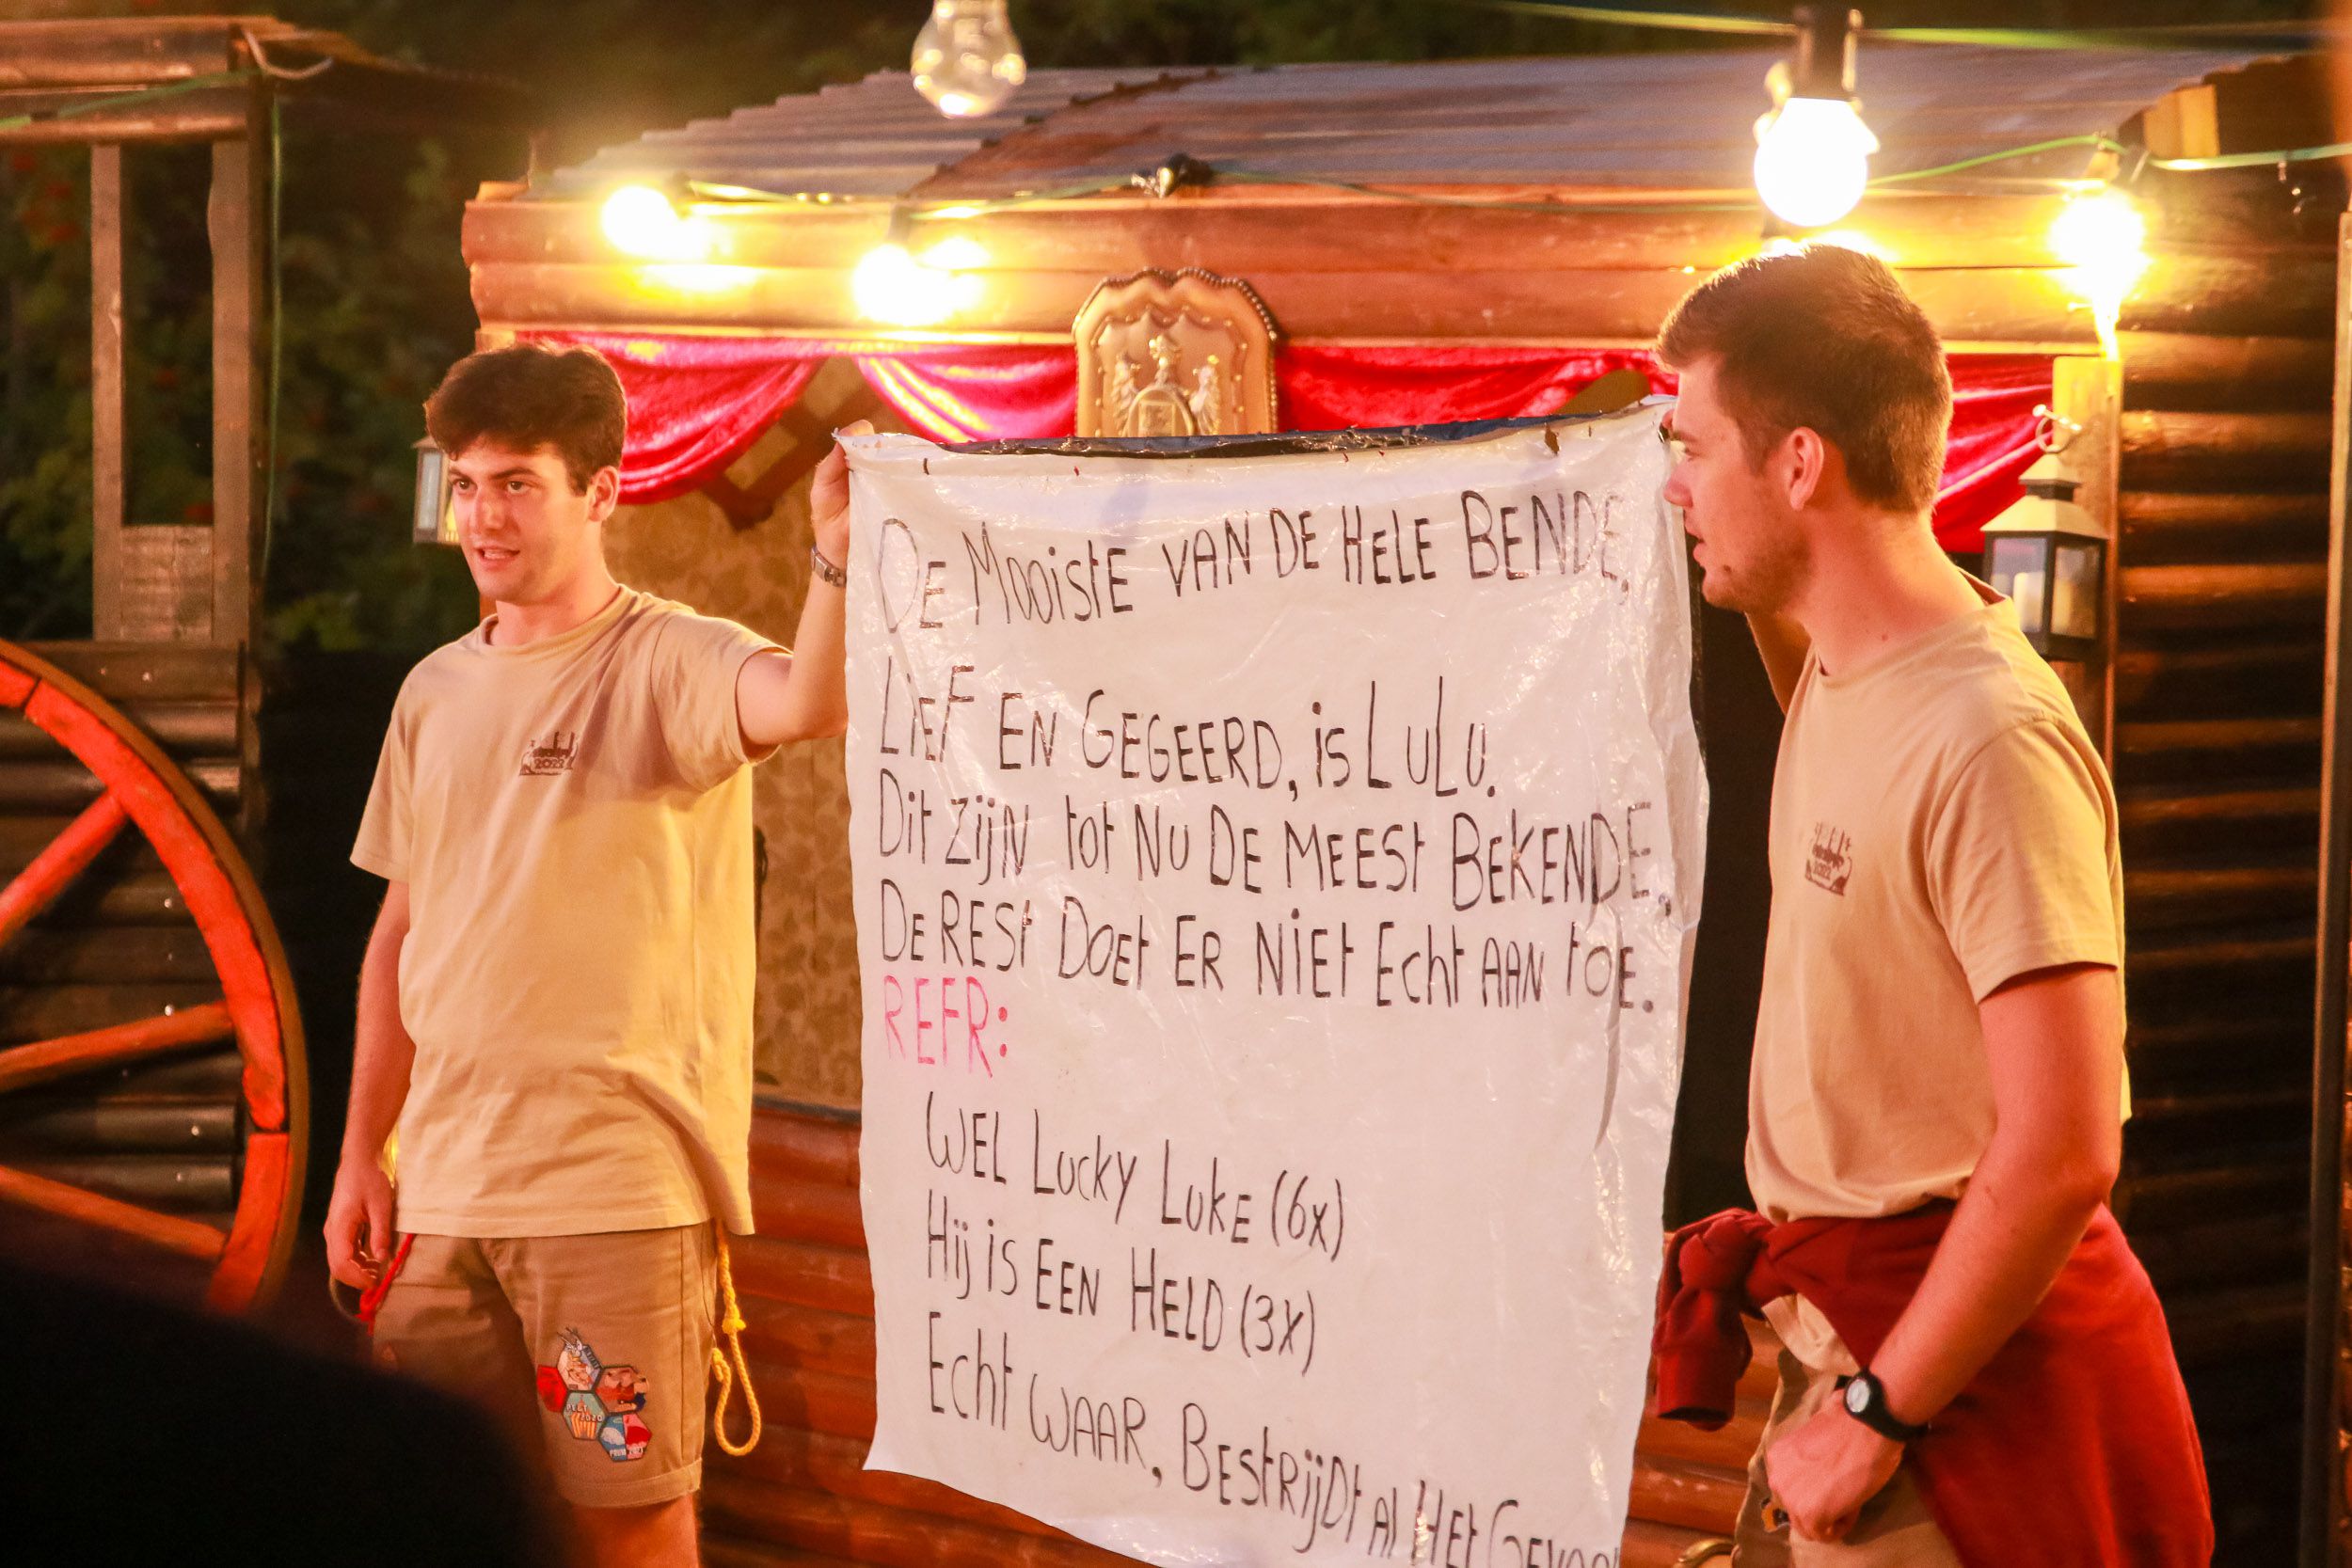 De Mooiste van de hele bende,
Lief en gegeerd, is Lulu.
Dit zijn tot nu de meest bekende,
De rest doet er niet echt aan toe.
REFR:
Wel Lucky Luke (6x)
Hij is een held (3x)
Echt waar, bestrijdt al het
2022
2022
2020